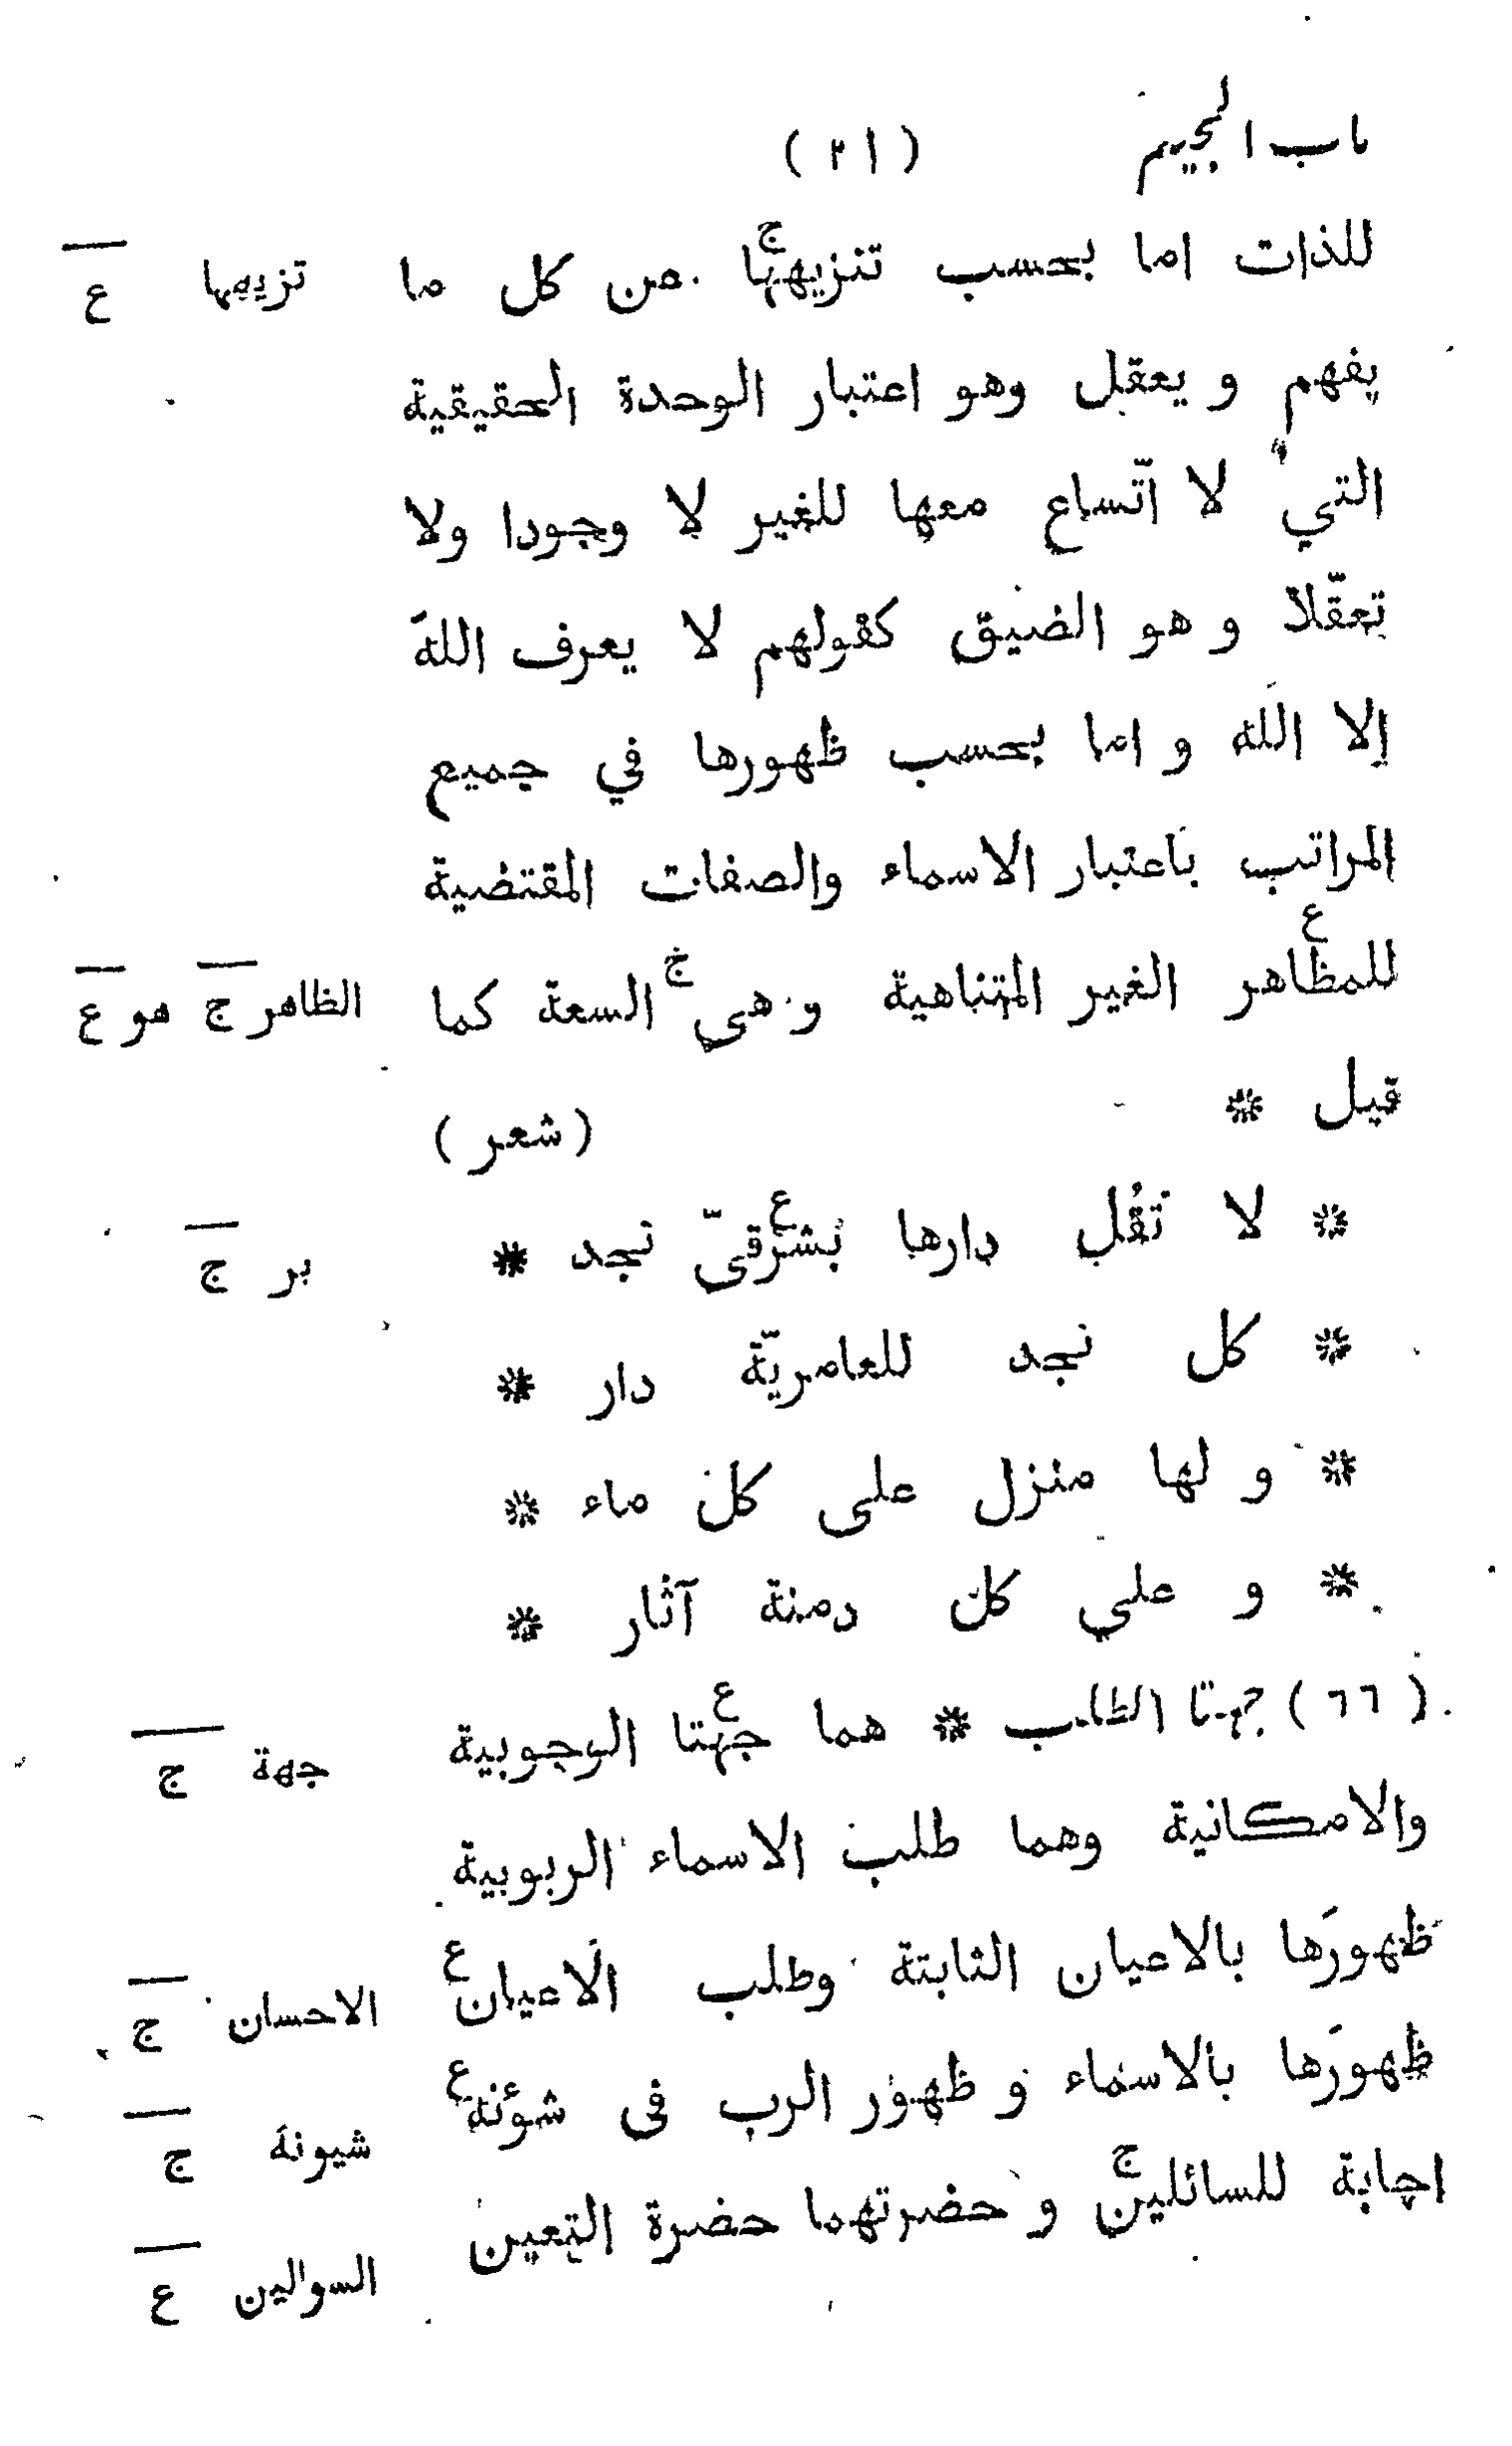 باب الجيم (٢١)
للذات اما بحسب تنزيهها ج من كل ما تزيهها ع
يفهم و يعقل وهو اعتبار الوحدة الحقيقية
التي لا اتّساع معها للغير لا وجودا ولا
تعقّلا و هو الضيق كقولهم لا يعرف اللهَ
إلا الله و اما بحسب ظهورها في جميع
المراتب باعتبار الاسماء والصفات المقتضية
للمظاهر ع الغير المتناهية و هي ج السعة كما الظاهر ج هو ع
قيل * (شعر)
* لا تقُل دارها بشرقيّ ع نجد * بر ج
* كل نجد للعامريّة دار *
* و لها منزل على كل ماء *
* و علي كل دمنة آثار *
(٦٦) جهتا الطلب * هما جهتا ع الوجوبية جهة ج
والامكانية وهما طلب الاسماء الربوبية
ظهورَها بالاعيان الثابتة وطلب الاعيان ع الاحسان ج
ظهورَها بالاسماء و ظهور الرب فى شوٴنه ع شيونه ج
اجابة للسائلين ج و حضرتهما حضرة التعين السوالين ع